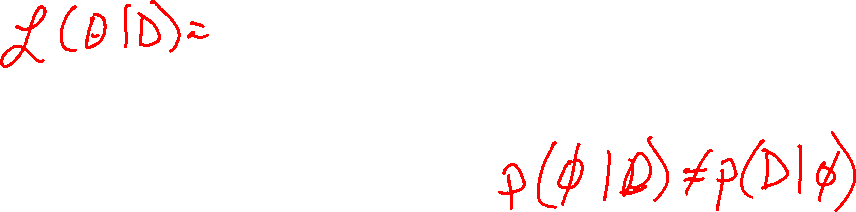 ℒ(θ|D)=
p(ϕ|D)≠p(D|ϕ)